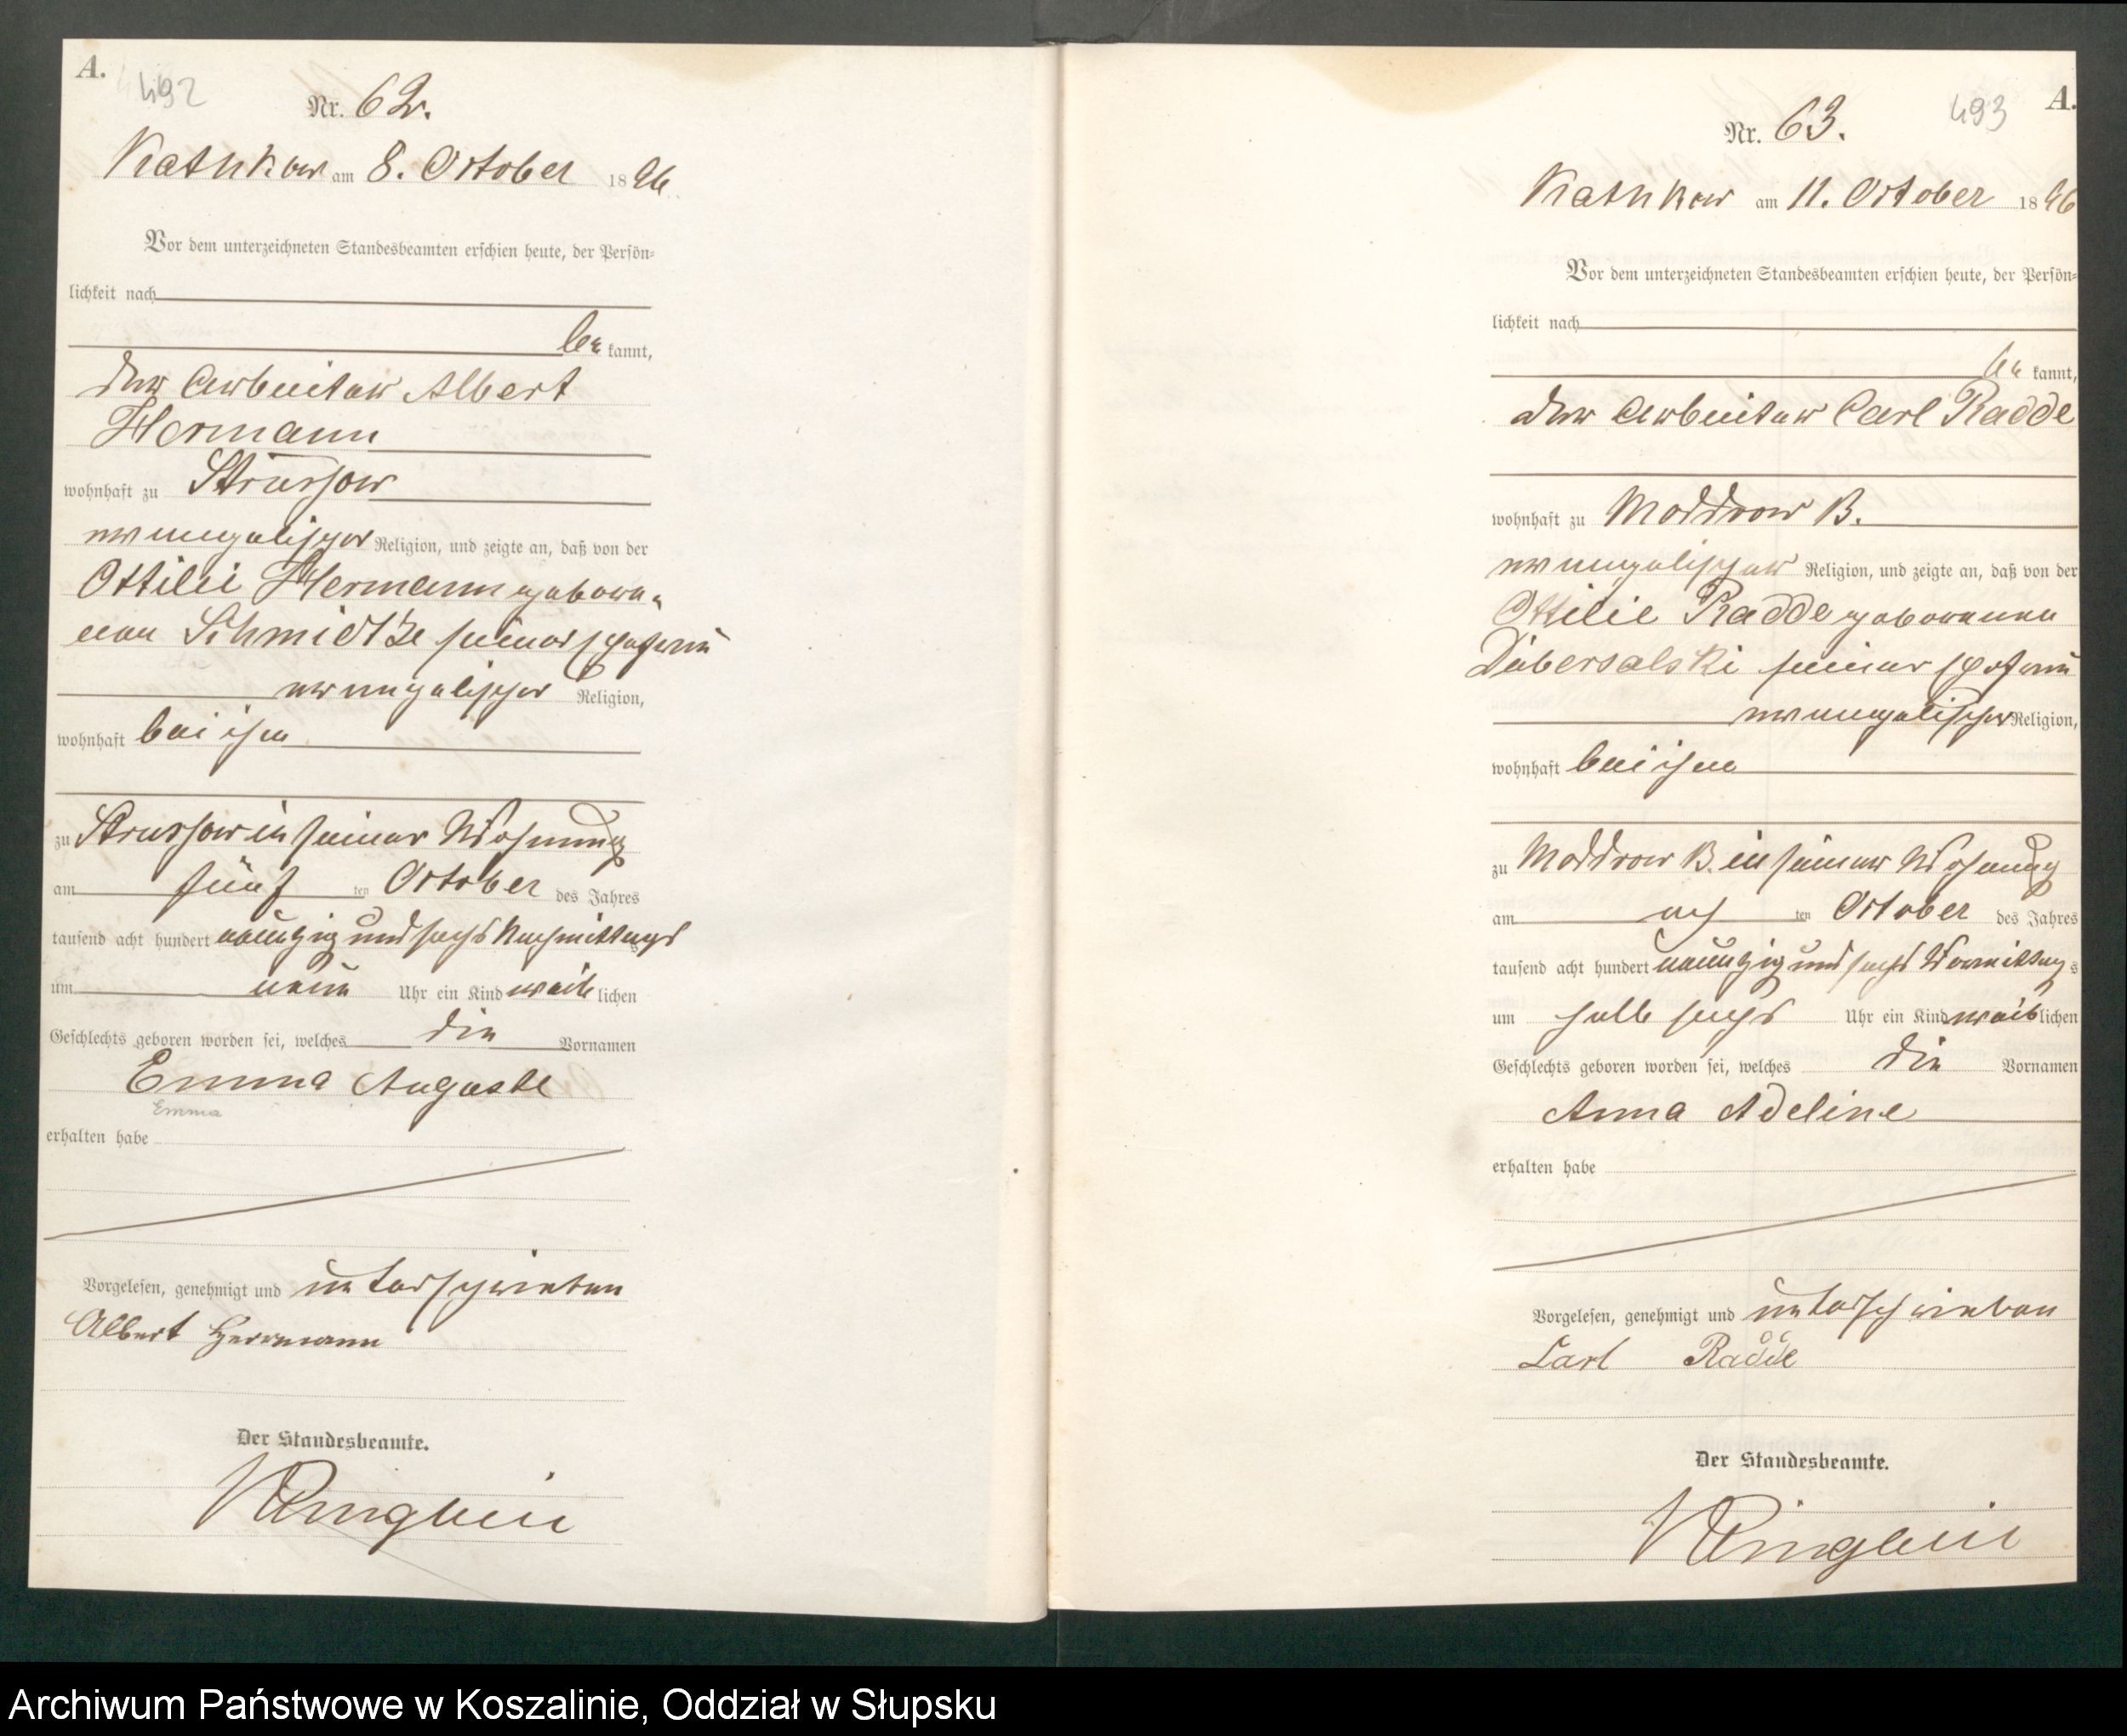 A.
492
Nr. 62.
Kathkow am 8. October 1896
Vor dem unterzeichneten Standesbeamten erschien heute, der Persön-
lichkeit nach
be kannt,
der Arbeiter Albert
Hermann
wohnhaft zu Strussow
evangelischer Religion, und zeigte an, daß von der
Ottilie Hermann gebore-
nen Schmidtke seiner Ehefrau
evangelischer Religion,
wohnhaft bei ihm
zu Strussow in seiner Wohnung
am fünf ten October des Jahres
tausend acht hundert neunzig und sechs Nachmittags
um neun Uhr ein Kind weib lichen
Geschlechts geboren worden sei, welches die Vornamen
Emma Auguste
Emma
erhalten habe
Vorgelesen, genehmigt und unterschrieben
Albert Herrmann
Der Standesbeamte.
A.
493
Nr. 63.
Kathkow am 11. October 1896
Vor dem unterzeichneten Standesbeamten erschien heute, der Persön-
lichkeit nach
be kannt,
der Arbeiter Carl Radde
wohnhaft zu Moddrow B.
evangelischer Religion, und zeigte an, daß von der
Ottilie Radde geborenen
Dübersalski seiner Ehefrau
evangelischer Religion,
wohnhaft bei ihm
zu Moddrow B. in seiner Wohnung
am ach ten October des Jahres
tausend acht hundert neunzig und sechs Vormittags
um halb sechs Uhr ein Kind weiblichen
Geschlechts geboren worden sei, welches die Vornamen
Anna Adeline
erhalten habe
Vorgelesen, genehmigt und unterschrieben
Carl Radde
Der Standesbeamte.
Archiwum Państwowe w Koszalinie, Oddział w Słupsku